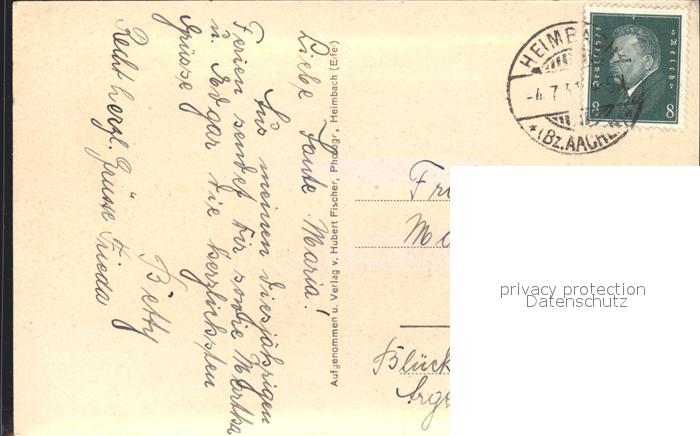 Liebe Tante Maria!
Aus meinen diesjährigen
Ferien sendet dir sowie Martha
u. Edgar die herzlichsten
Grüsse
Betty
Recht herzl. Grüsse Frieda
Aufgenommen u. Verlag v. Hubert Fischer, Photogr., Heimbach (Eife)
HEIMBACH
-4.7.31
*(Bz.AACHEN)
Deutsches Reich
8 8
Fr
Ma
Blück
privacy protection
Datenschutz